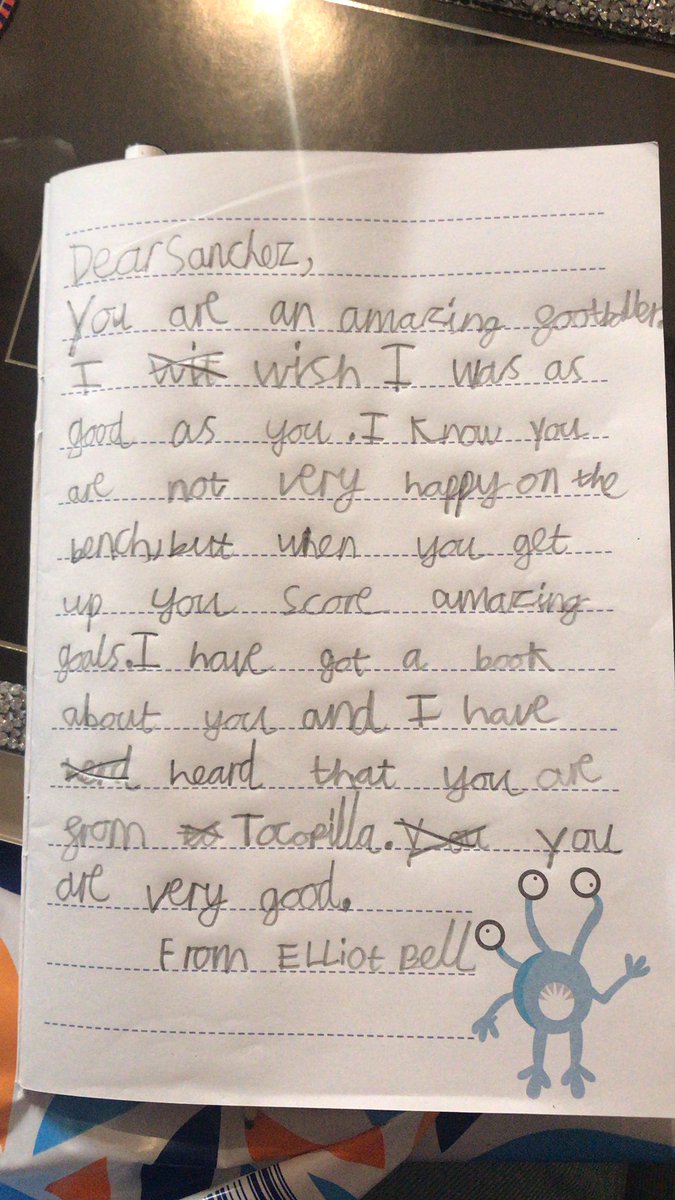 Dear Sanchez,
You are an amazing footballer.
I wit wish I was as
good as you. I know you
are not very happy on the
bench, but when you get
up you score amazing
goals. I have got a book
about you and I have
herd heard that you are
from to Tocopilla. You you
are very good.
From Elliot Bell